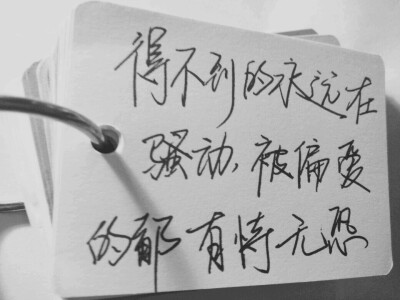 得不到的永远在
骚动,被偏爱
的都有恃无恐